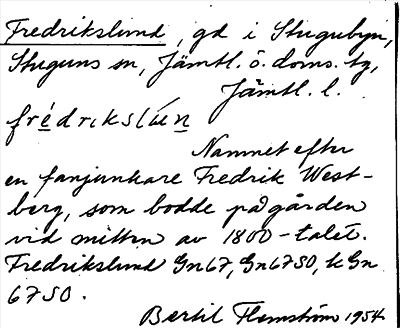 Fredrikslund, gd i Stugubyn,
Stuguns sn, Jämtl. ö. doms. tg,
Jämtl. l.
frédrikslún
Namnet efter
en fanjunkare Fredrik West-
berg, som bodde på gården
vid mitten av 1800-talet.
Fredrikslund Gn67, Gn67SO, k Gn
67SO.
Bertil Flemström 1954